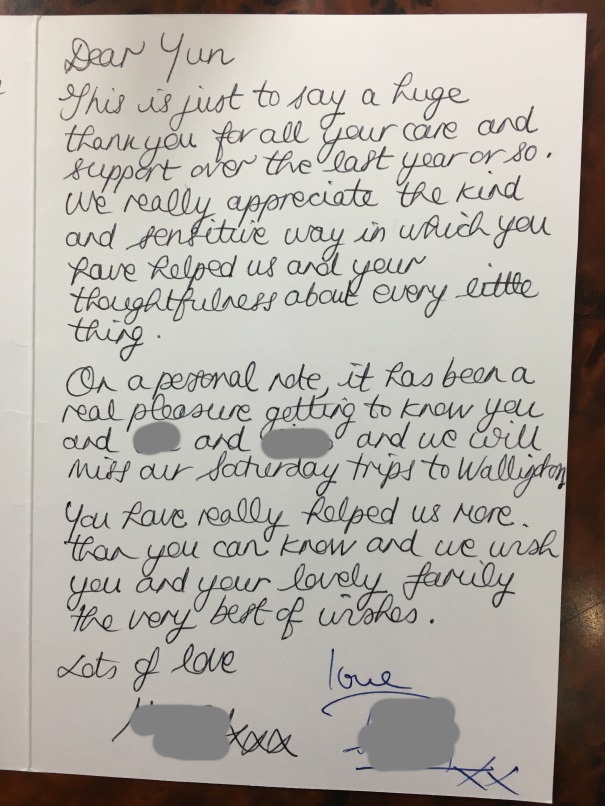 Dear Yun
This is just to say a huge
thank you for all your care and
support over the last year or so.
We really appreciate the kind
and sensitive way in which you
have helped us and your
thoughtfulness about every little
thing.
On a personal note, it has been a
real pleasure getting to know you
and and and we will
miss our Saturday trips to Wallington
You have really helped us more.
than you can know and we wish
you and your lovely family
the very best of wishes.
Lots of love
love
xxx
xx